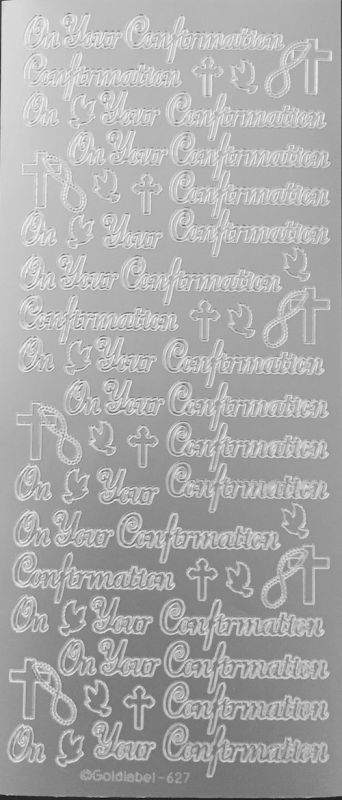 On Your Confirmation
Confirmation
On Your Confirmation
On Your Confirmation
Confirmation
On Your Confirmation
On Your Confirmation
Confirmation
On Your Confirmation
On Your Confirmation
Confirmation
On Your Confirmation
On Your Confirmation
Confirmation
On Your Confirmation
On Your Confirmation
Confirmation
On Your Confirmation
©Goldlabel-627